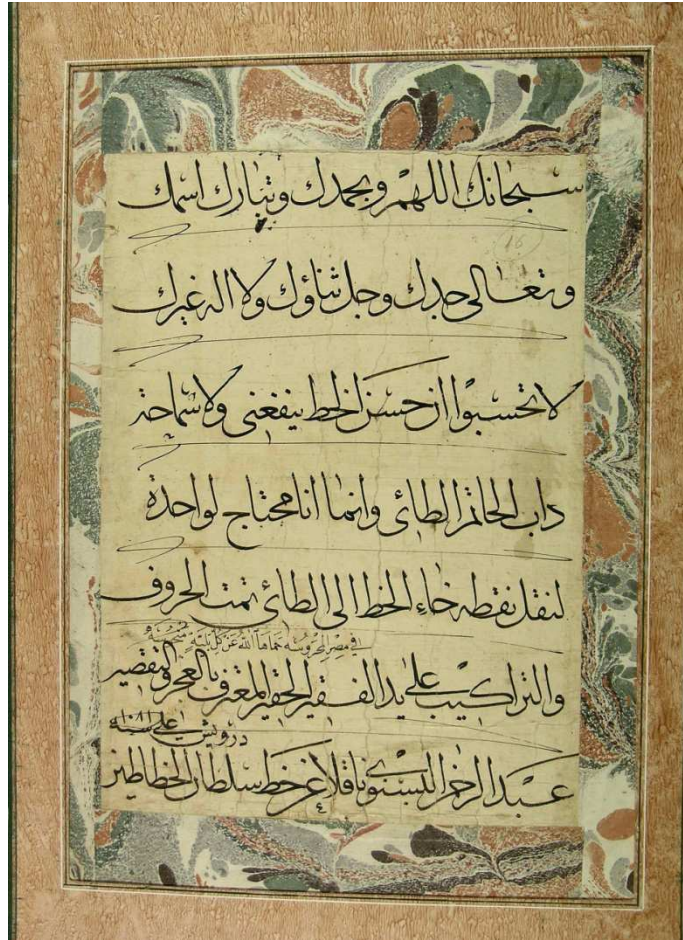 سبحانك اللهم وبحمدك وتبارك اسمك
وتعالى جدك وجل ثناؤك ولا اله غيرك
لا تحسبوا ان حسن الخط ينفعنى ولا سماحة
داب الحاتم الطائى وانما انا محتاج لواحدة
لنقل نقطه خاء الخط الى الطائى تمت الحروف
فى مصر المحروسه حماها الله عن كل بلية
والتراكيب على يد الفقير الحقير المعترف بالعجز والتقصير
درويش على سنه ١٠٨١
عبد الرحمن ناقلا عن خط سلطان الخطاطين